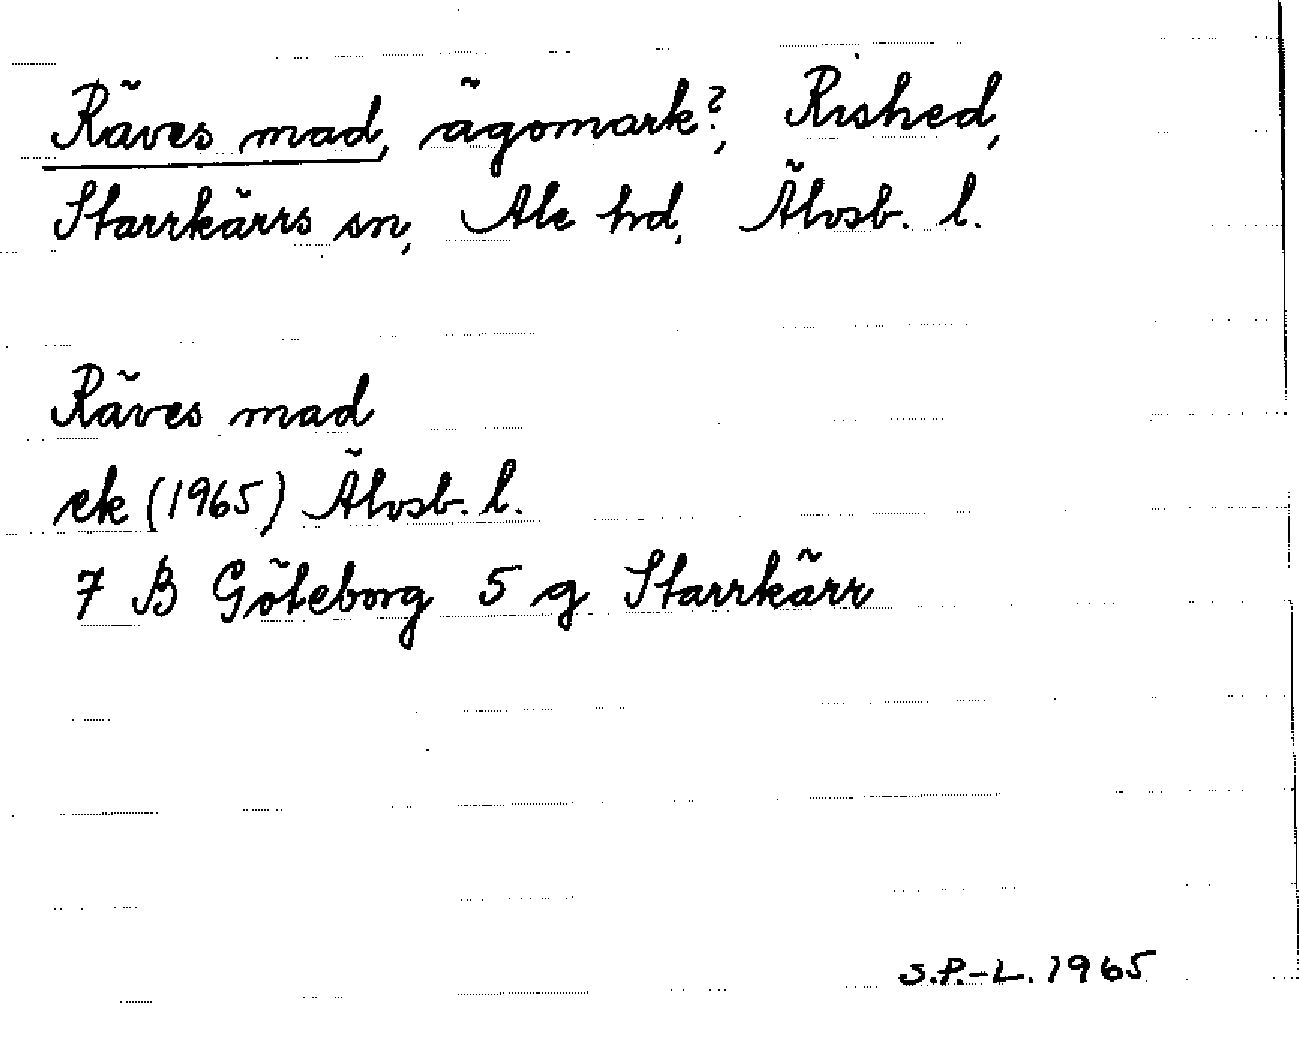 Räves mad, ägomark?, Rished,
Starrkärrs sn, Ale hd, Älvsb. l.
Räves mad
ek (1965) Älvsb. l.
7 B Göteborg 5 g Starrkärr
S.P.-L. 1965